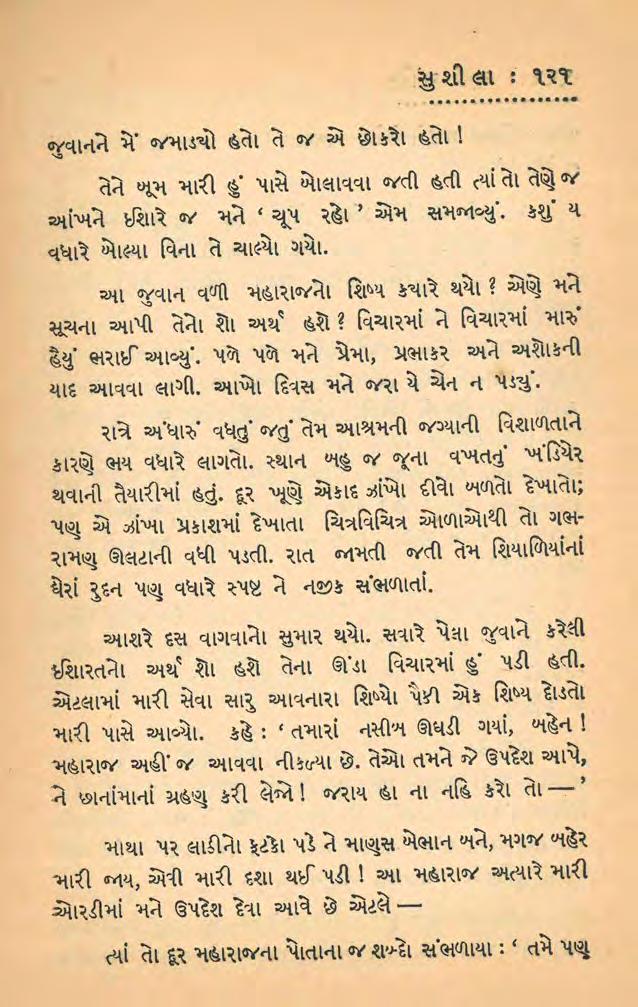 સુશીલા : ૧૨૧
જુવાનને મેં જમાડ્યો હતો તે જ એ છોકરો હતો !
તેને બૂમ મારી હું પાસે બોલાવવા જતી હતી ત્યાં તો તેણે જ
આંખને ઈશારે જ મને ‘ ચૂપ રહો ’ એમ સમજાવ્યું. કશું ય
વધારે બોલ્યા વિના તે ચાલ્યો ગયો.
આ જુવાન વળી મહારાજનો શિષ્ય ક્યારે થયો ? એણે મને
સૂચના આપી તેનો શો અર્થ હશે ? વિચારમાં ને વિચારમાં મારું
હૈયું ભરાઈ આવ્યું. પળે પળે મને પ્રેમા, પ્રભાકર અને અશોકની
યાદ આવવા લાગી. આખો દિવસ મને જરા યે ચેન ન પડ્યું.
રાત્રે અંધારું વધતું જતું તેમ આશ્રમની જગ્યાની વિશાળતાને
કારણે ભય વધારે લાગતો. સ્થાન બહુ જ જૂના વખતનું ખંડિયેર
થવાની તૈયારીમાં હતું. દૂર ખૂણે એકાદ ઝાંખો દીવો બળતો દેખાતો;
પણ એ ઝાંખા પ્રકાશમાં દેખાતા ચિત્રવિચિત્ર ઓળાઓથી તો ગભ-
રામણ ઊલટાની વધી પડતી. રાત જામતી જતી તેમ શિયાળિયાંનાં
ઘેરાં રુદન પણ વધારે સ્પષ્ટ ને નજીક સંભળાતાં.
આશરે દસ વાગવાનો સુમાર થયો. સવારે પેલા જુવાને કરેલી
ઈશારતનો અર્થ શો હશે તેના ઊંડા વિચારમાં હું પડી હતી.
એટલામાં મારી સેવા સારુ આવનારા શિષ્યો પૈકી એક શિષ્ય દોડતો
મારી પાસે આવ્યો. કહે : ‘ તમારાં નસીબ ઊઘડી ગયાં, બહેન !
મહારાજ અહીં જ આવવા નીકળ્યા છે. તેઓ તમને જે ઉપદેશ આપે,
તે છાનાંમાનાં ગ્રહણ કરી લેજો ! જરાય હા ના નહિ કરો તો — ’
માથા પર લાડીનો ફટકો પડે ને માણસ બેભાન બને, મગજ બહેર
મારી જાય, એવી મારી દશા થઈ પડી ! આ મહારાજ અત્યારે મારી
ઓરડીમાં મને ઉપદેશ દેવા આવે છે એટલે —
ત્યાં તો દૂર મહારાજના પોતાના જ શબ્દો સંભળાયા : ‘ તમે પણ